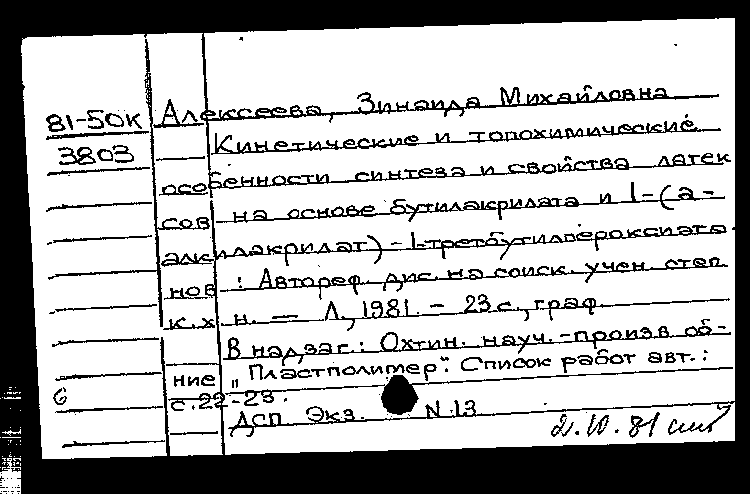 81-50К Алексеева, Зинаида Михайловна
3803 Кинетические и топохимические
особенности синтеза и свойства латек
сов на основе бутилакрилата и 1-(а-
алкилакрилат)-1-третбутилпероксиэта-
нов : Автореф. дис. на соиск. учен. степ.
к. х н. — Л., 1981. - 23 с., граф.
В надзаг.: Охтин. науч.-произв об-
ние „Пластполимер". Список работ авт.:
6 с. 22-23.
ДСП Экз. N 13
2.10.81